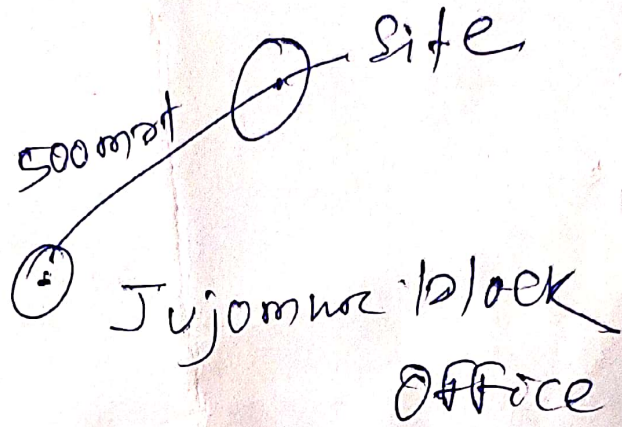 Site
500 mrt
Jujomura block
Office